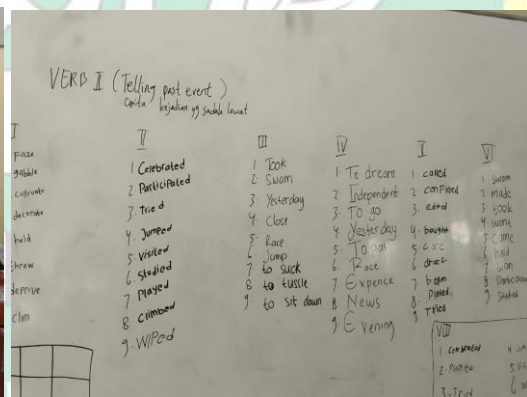 VERB II (Telling past event)
Cerita kejadian yg sudah lewat
I
Faze
gabble
cultivate
decorate
hold
threw
deprive
Clim
II
1 Celebrated
2. Participated
3. Tried
4. Jumped
5. Visited
6. Studied
7. Played
8 Climbed
9. WIPed
III
1 Took
2. Swam
3. Yesterday
4. Close
5. Race
6 Jump
7 to suck
8 to tussle
9. to sit down
IV
1 To dream
2 Independent
3. To go
4. Yesterday
5. To
6. Race
7 Expence
8 News
9 Evening
I
1 called
2 confined
3. edited
4. bought
5. care
6 draft
7 began
8 Played
9 Tried
VI
1. Swam
2 made
3 took
4 went
5 came
6 held
7 won
8 Participated
9 Studied
VIII
1. Celebrated
2. Played
3. Tried
4
5
6